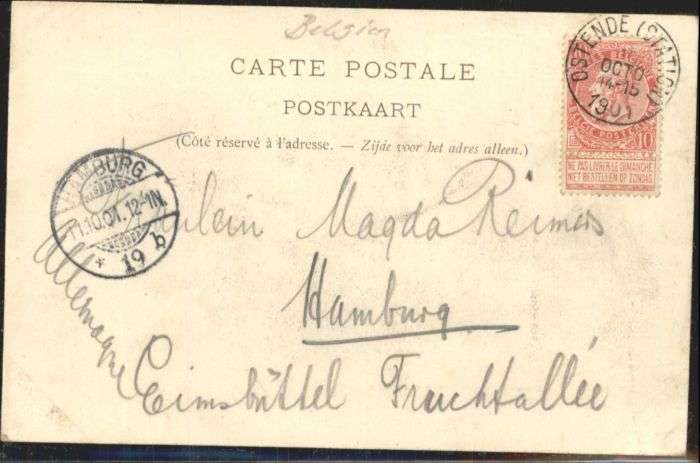 Belgien
CARTE POSTALE
POSTKAART
(Côté réservé à l'adresse. — Zijde voor het adres alleen.)
OSTENDE (STATION)
OCTO
14-15
1901
10
NE PAS LIVRER LE DIMANCHE
NIET BESTELLEN OP ZONDAG
HAMBURG
11.10.01. 12-1N.
* 19 b
Fräulein Magda Reimers
Hamburg
Allemagne
Eimsbüttel Fruchtallée